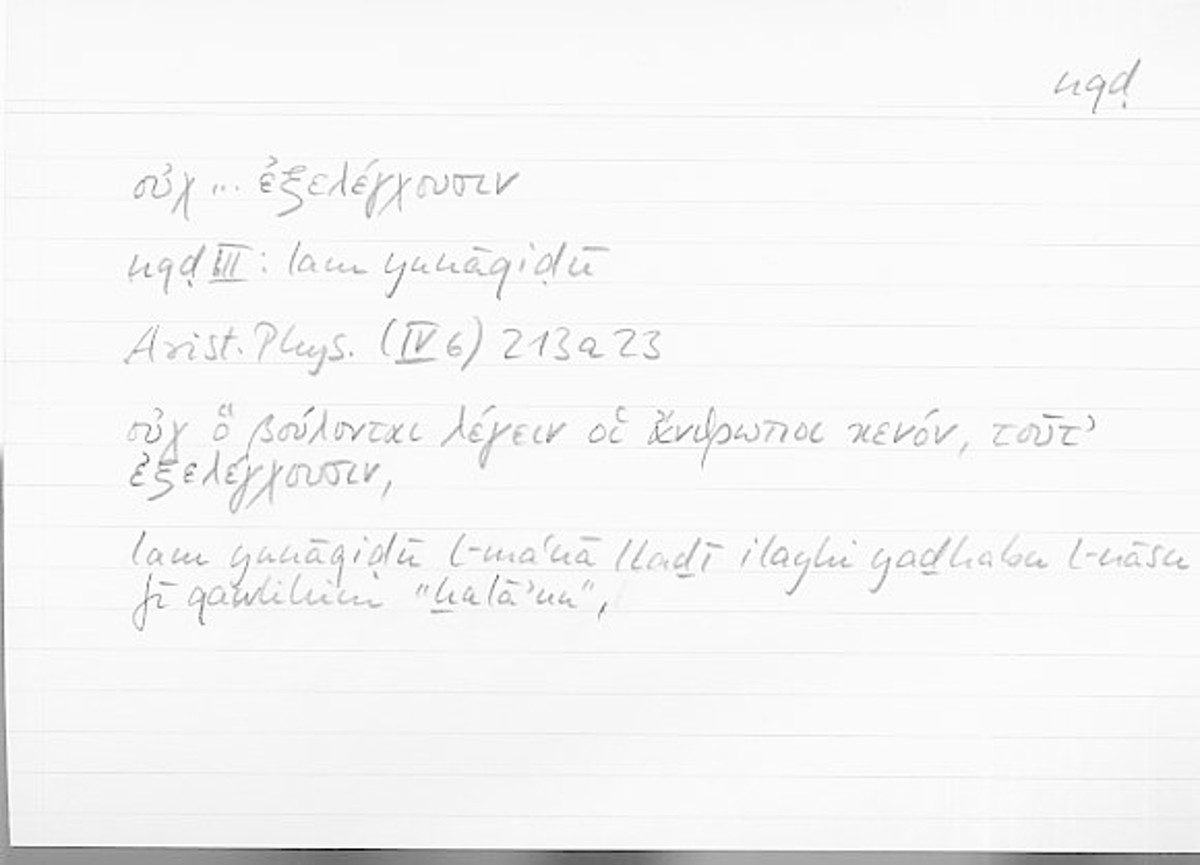 nqḍ
οὐχ ... ἐξελέγχουσιν
nqḍ III: lam yunāqiḍū
Arist. Phys. (IV 6) 213a23
οὐχ ὃ βούλονται λέγειν οἱ ἄνθρωποι κενόν, τοῦτ’
ἐξελέγχουσιν,
lam yunāqiḍū l-maʿnā llaḏī ilayhi yaḏhabu l-nāsu
fī qawlihim "ḫalāʾun",